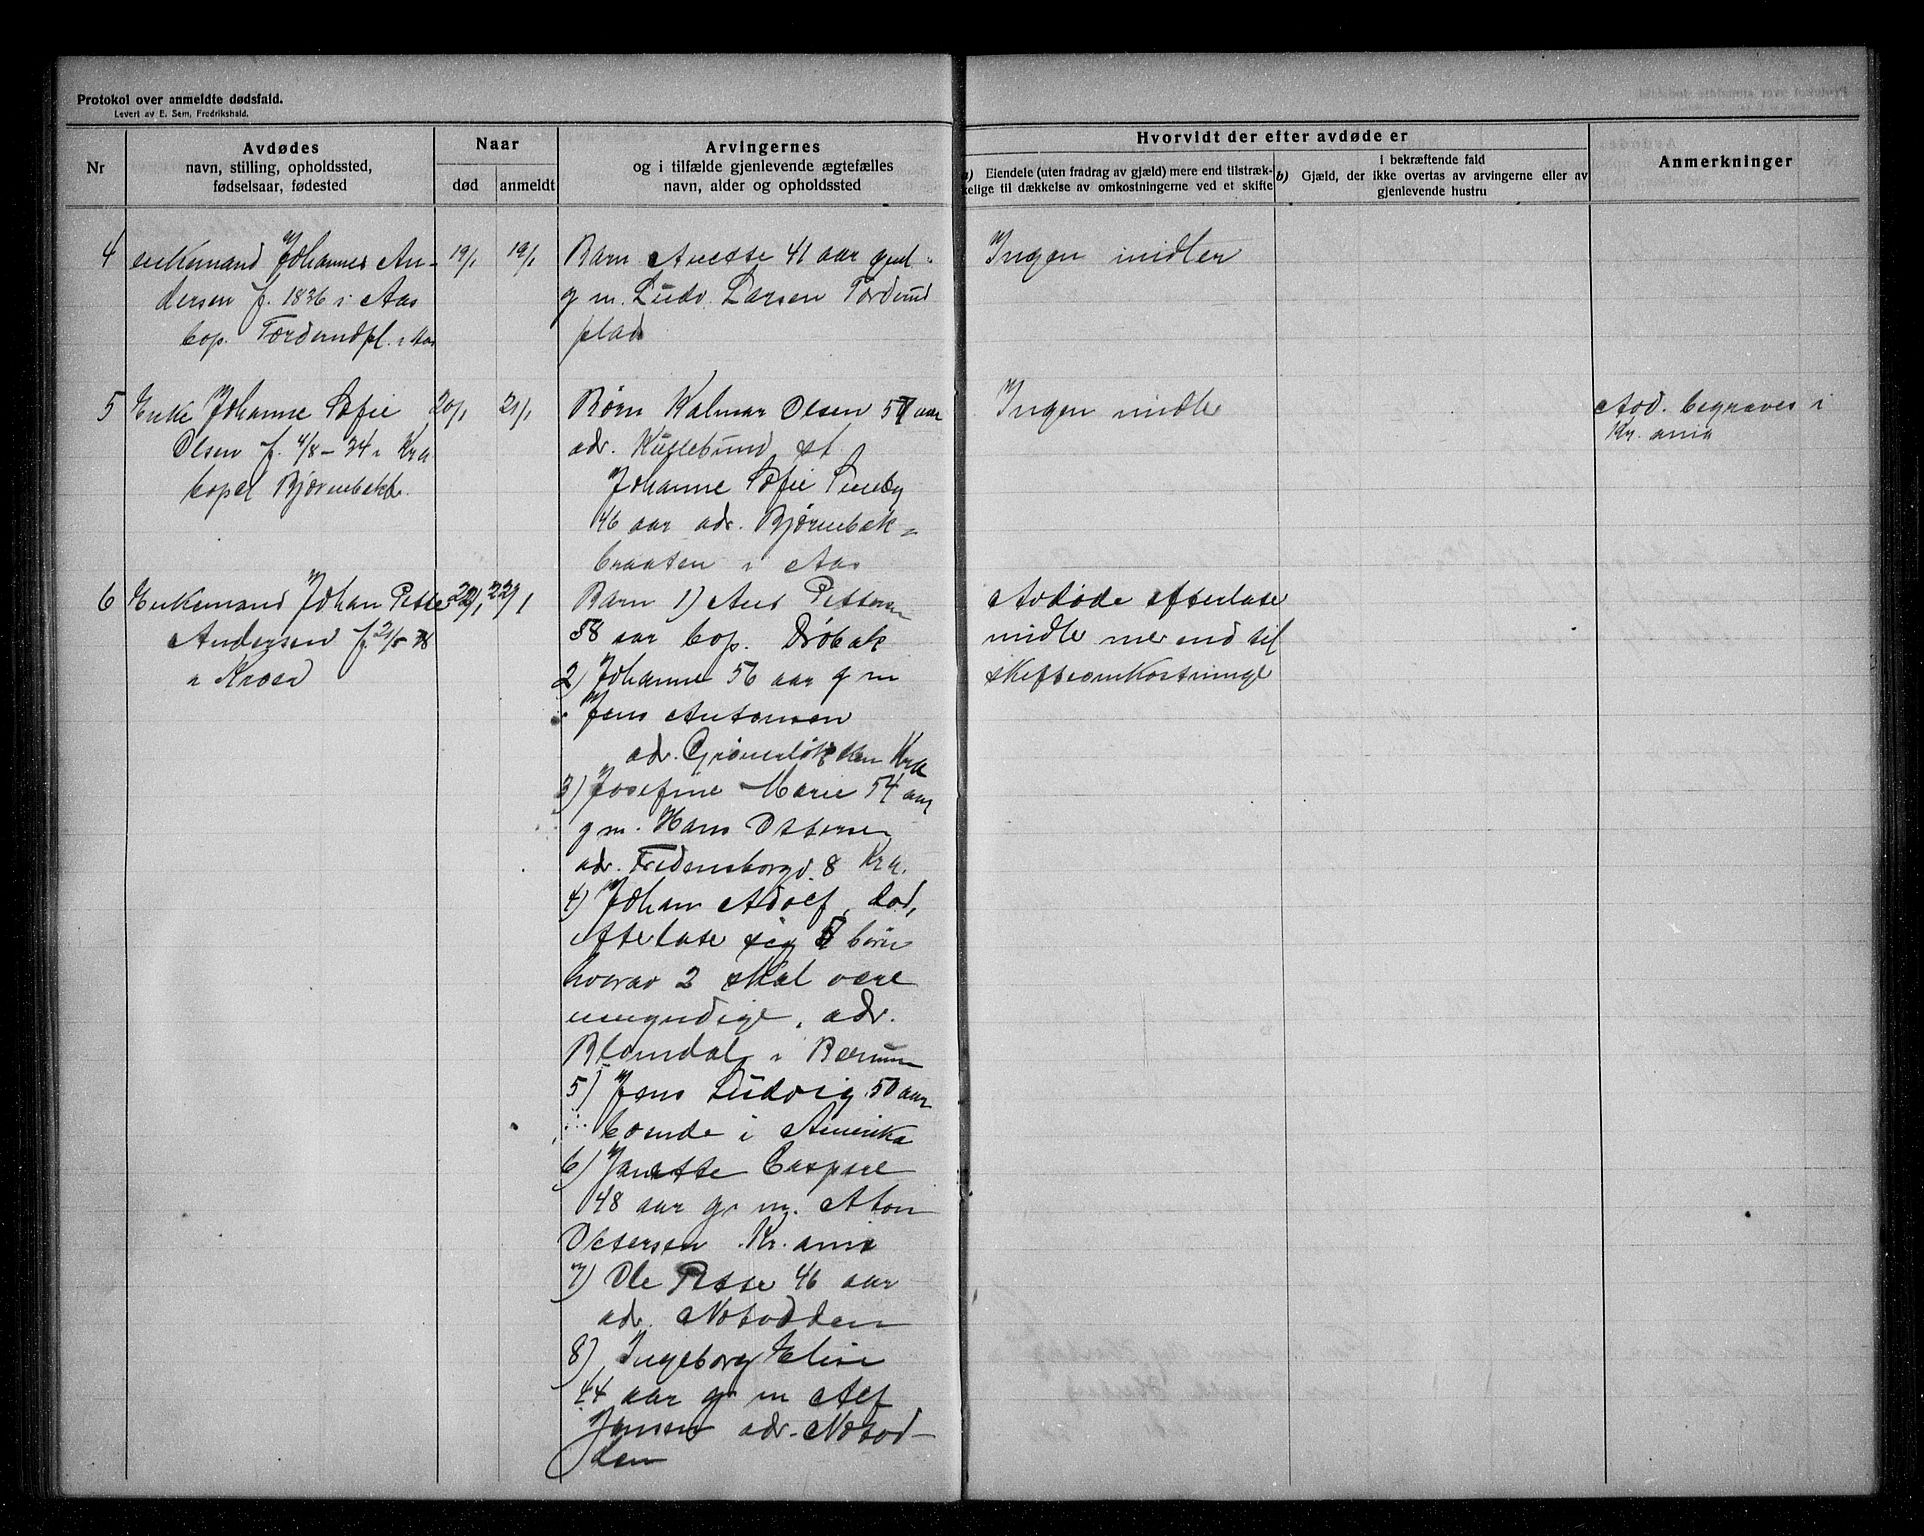 Protokol over anmeldte dødsfald.
Levert av E. Sem, Fredrikshald.
Nr
Avdødes
navn, stilling, opholdssted,
fødselsaar, fødested
Naar
død
anmeldt
Arvingernes
og i tilfælde gjenlevende ægtefælles
navn, alder og opholdssted
Hvorvidt der efter avdøde er
a) Eiendele (uten fradrag av gjæld) mere end tilstræk-
kelige til dækkelse av omkostningerne ved et skifte
i bekræftende fald
b) Gjæld, der ikke overtas av arvingerne eller av
gjenlevende hustru
Anmerkninger
4
enkemand Johannes An-
dersen f. 1836 i Aas
bop. i Aas
19/1
19/1
Barn Anette 41 aar
g m. Ludv. Larsen
plads
Ingen midler
5
Enke Johanne Sofie
Olsen f. 4/8 – 34 i Kra
bopæl Bjørnebekk
20/1
21/1
Børn Kalmar Olsen 57 aar
adr. st.
Johanne Sofie
46 aar adr. Bjørnebæk-
braaten i Aas
Ingen midle
Avd. begraves i
Kr.ania
6
Enkemand Johan Petter
Andersen f. 21/5
i Kroer
22/1
22/1
Barn 1) Ant Petter
58 aar bop. Drøbak
2) Johanne 56 aar g m
Jens Antonsen
adr. Grønerløkken Kra
3) Josefine Marie 54 aar
g m. Hans
adr. Fredensborgv. 8 Kra.
4) Johan Adolf, død,
efterlate sig børn
hvorav 2 skal være
umyndige, adr.
Blomdal i Bærum
5) Jens Ludvig 50 aar
boende i Amerika
6) Janette Caspare
48 aar g m. Aton
Petersen Kr.ania
7) Ole Petter 46 aar
adr. Notodden
8) Ingeborg Elise
44 aar g m Alf
Jensen adr. Notod-
den
Avdøde efterlate
midle mer end til
skifteomkostninge